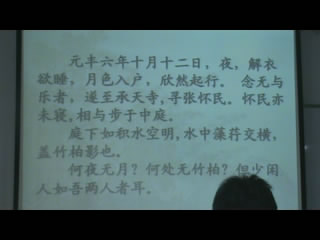 元丰六年十月十二日，夜，解衣
欲睡，月色入户，欣然起行。 念无与
乐者，遂至承天寺，寻张怀民。怀民亦
未寝，相与步于中庭。
庭下如积水空明，水中藻荇交横，
盖竹柏影也。
何夜无月？何处无竹柏？但少闲
人如吾两人者耳。